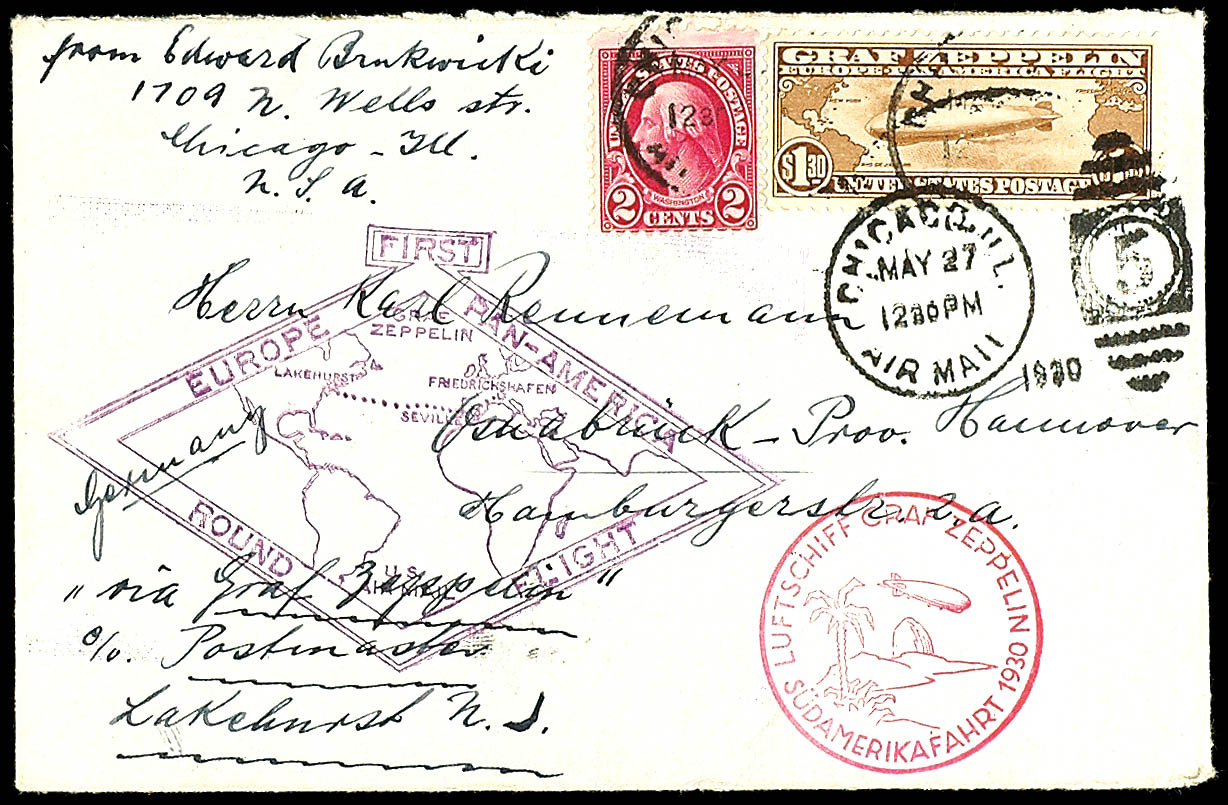 from Edward Brukwicki
1709 N. Wells str.
Chicago - Ill.
U. S. A.
UNITED STATES POSTAGE
WASHINGTON
2 CENTS 2
GRAF ZEPPELIN
EUROPE-PAN AMERICA FLIGHT
$1.30
UNITED STATES POSTAGE
CHICAGO, ILL.
MAY 27
1230 PM
AIR MAIL
1930
5
FIRST
EUROPE PAN-AMERICA
GRAF
ZEPPELIN
LAKEHURST
FRIEDRICHSHAFEN
SEVILLE
ROUND FLIGHT
U.S.
AIR MAIL
Herrn Karl Rennemann
Osnabrück - Prov. Hannover
Hamburgerstr. 2a.
Germany
"via Graf Zeppelin"
c/o. Postmaster
Lakehurst N. J.
LUFTSCHIFF GRAF ZEPPELIN
SÜDAMERIKAFAHRT 1930